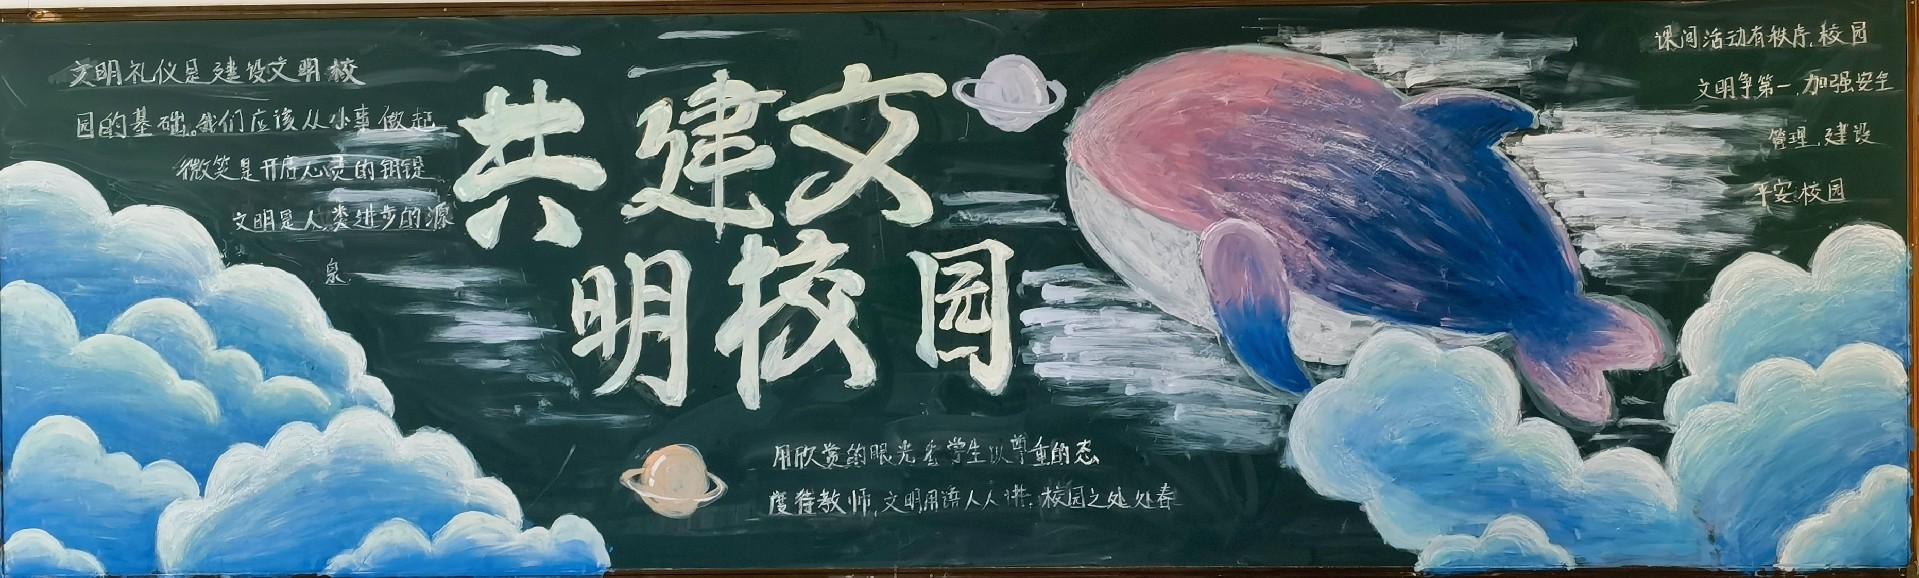 文明礼仪是建设文明校
园的基础。我们应该从小事做起
微笑是开启心灵的钥匙
文明是人类进步的源
泉
共建文
明校园
用欣赏的眼光看学生以尊重的态
度待教师,文明用语人人讲,校园之处处春
课间活动有秩序,校园
文明争第一,加强安全
管理,建设
平安校园